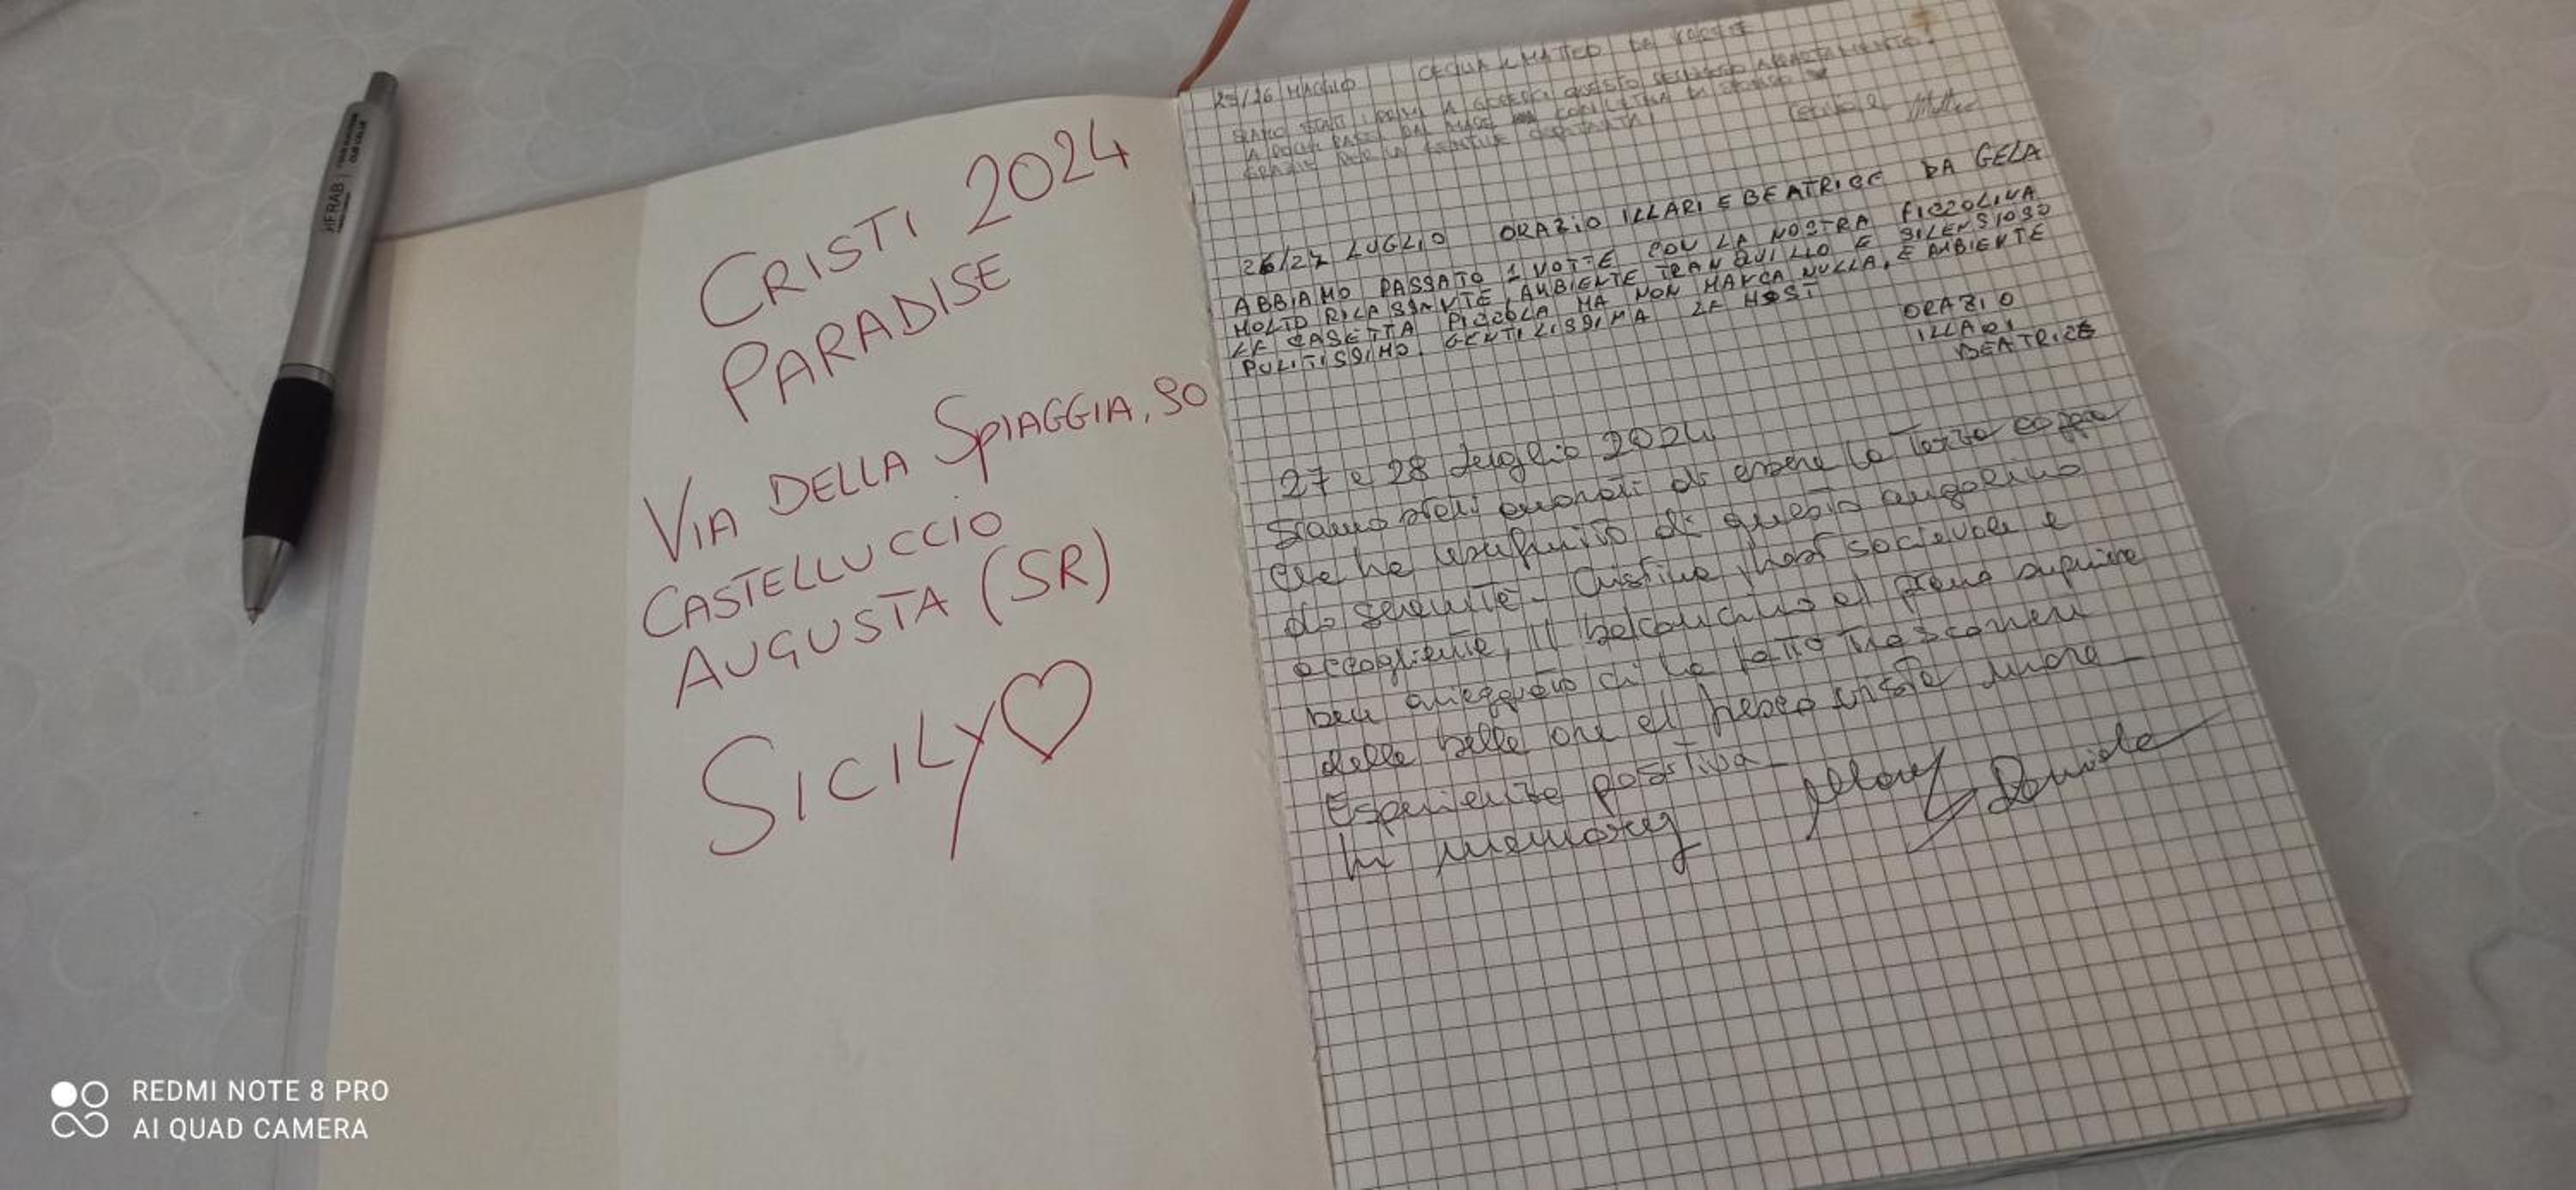 CRISTI 2024
PARADISE
VIA DELLA SPIAGGIA, 90
CASTELLUCCIO
AUGUSTA (SR)
SICILY
25/26 MAGGIO CECILIA E MATTEO DA
SIAMO STATI I PRIMI A GODERCI QUESTO DELIZIOSO APPARTAMENTO
A POCHI PASSI DAL MARE
GRAZIE PER LA GENTILE OSPITALITÀ
Cecilia e Matteo
26/27 LUGLIO ORAZIO ILLARI E BEATRICE DA GELA
ABBIAMO PASSATO 1 NOTTE CON LA NOSTRA FIGLIOLINA
MOLTO RILASSANTE, AMBIENTE TRANQUILLO E SILENSIOSO
LE CASETTA PICCOLA MA NON MANCA NULLA, E AMBIENTE
PULITISSIMO. GENTILISSIMA LE HOST
ORAZIO
ILLARI
BEATRICE
27 e 28 luglio 2024
Siamo stati onorati di essere la terza coppia
che ha usufruito di questo angolino
di serenità - Cristina, host socievole e
accogliente, Il balconcino al piano superiore
ben arieggiato ci ha fatto trascorrere
delle belle ore al fresco vista mare -
Esperienza positiva -
In memory Mary Daniele
REDMI NOTE 8 PRO
AI QUAD CAMERA